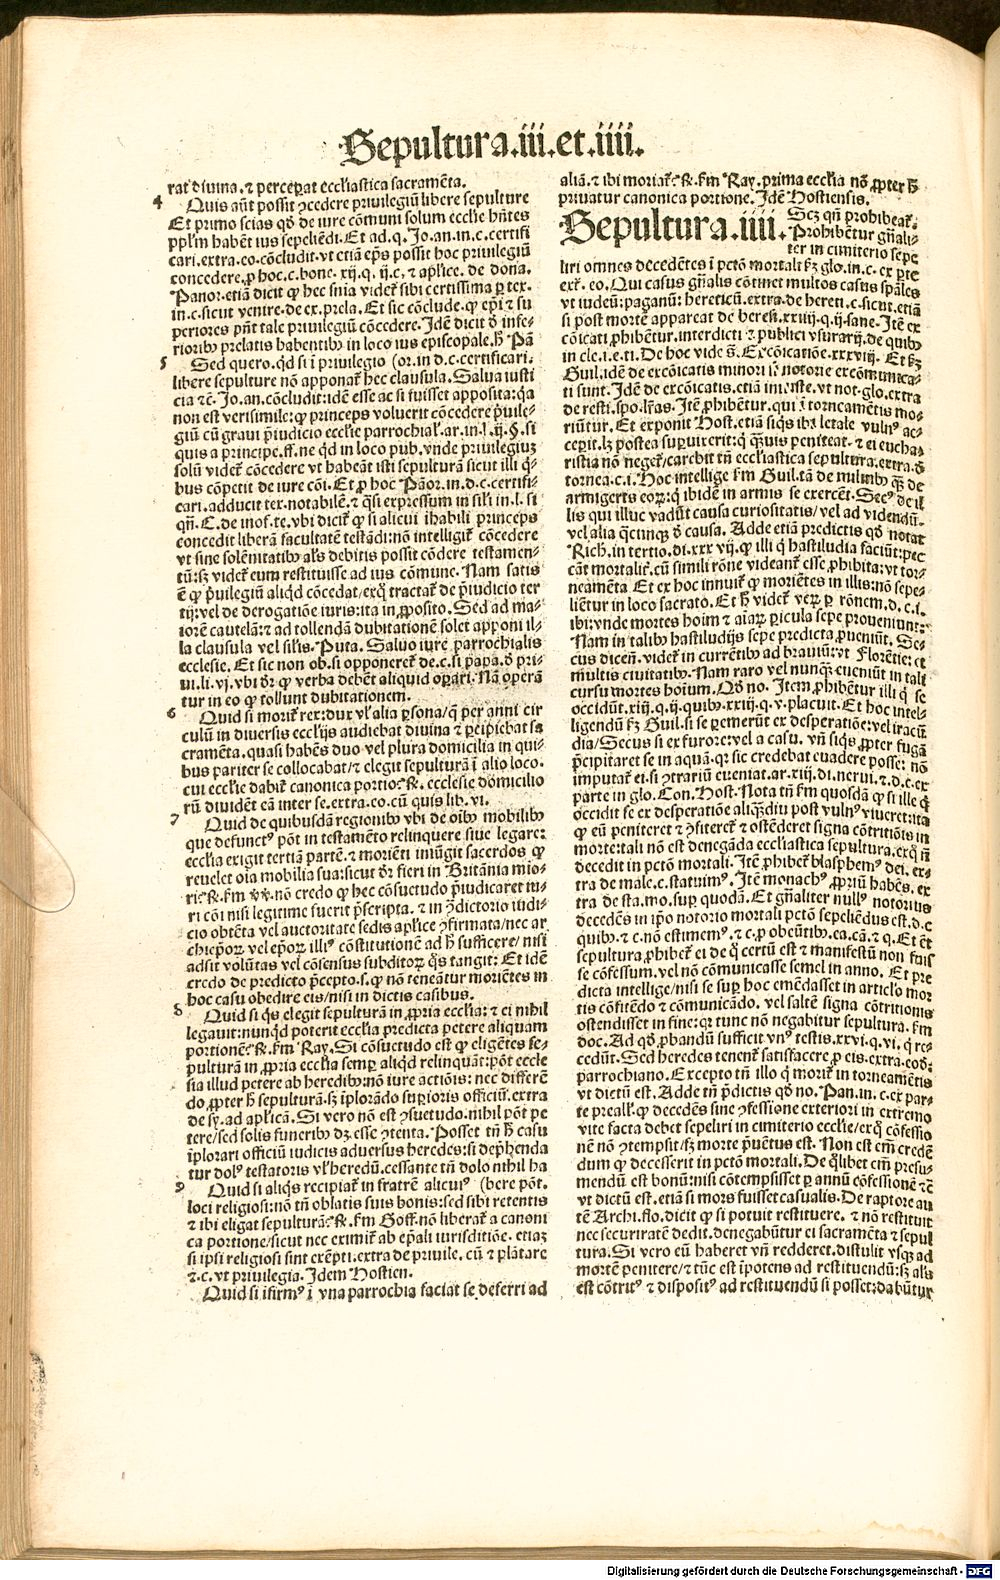 Sepultura.iii.et.iiii.
rat᷑ diuina.⁊ percepat ecclīastica sacramēta.
4 Quis aūt possit ꝯcedere priuilegiū libere sepulture
Et primo scias qd̄ de iure cōmuni solum ecclīe hn̄tes
ppl̄m habēt ius sepeliēdi. Et ad.q. Jo.an.in.c.certifi
cari.extra.eo.cōcludit.vt etiā ep̄s possit hoc priuilegiū
concedere.ꝓ hoc.c.bone.xij.q.ij.c.⁊ aplīce.de dona.
Panor.etiā dicit ꝙ hec snīa videt᷑ sibi certissima ꝑ tex.
in.c.sicut venire.de ex.prela. Et sic cōclude.ꝙ ep̄i ⁊ su
periores pn̄t tale priuilegiū cōcedere. Idē dicit d̄ infe-
rioribꝰ prelatis habentibꝰ in loco ius episcopale.h̄ Pā
5 Sed quero.qd̄ si ī priuilegio (or.in d.c.certificari.
libere sepulture nō apponat᷑ hec clausula. Salua iusti
cia ⁊c̄. Jo.an.cōcludit:idē esse ac si fuisset apposita:q̄a
non est verisimile:ꝙ princeps voluerit cōcedere p̄uile-
giū cū graui p̄iudicio ecclīe parrochial᷑.ar.in.l.ij.§.si
quis a principe.ff.ne qd̄ in loco pub.vnde priuilegiuȝ
solū videt᷑ cōcedere vt habeāt isti sepulturā sicut illi q̄-
bus cōpetit de iure cōi. Et ꝓ hoc Pāor.in.d.c.certifi-
cari.adducit ter.notabilē.⁊ q̄si expressum in sil̄i in.l.si
qn̄.C.de inof.te.vbi dicit᷑ ꝙ si alicui ihabili princeps
concedit liberā facultatē testādi:nō intelligit᷑ cōcedere
vt sine solēnitatibꝰ al̄s debitis possit cōdere testamen-
tū:sȝ videt᷑ eum restituisse ad ius cōmune. Nam satis
ē ꝙ p̄uilegiū aliqd̄ cōcedat/exq̄ tractat᷑ de p̄iudicio ter
tij:vel de derogatiōe iuris:ita in ꝓposito. Sed ad ma-
iorē cautelā:⁊ ad tollendā dubitationē solet apponi il-
la clausula vel silis. Puta. Saluo iure parrochialis
ecclesie. Et sic non ob.si opponeret᷑ de.c.si papa.d̄ pri-
ui.li.vj.vbi dr̄ ꝙ verba debēt aliquid opari. Nā operā
tur in eo ꝙ tollunt dubitationem.
6 Quid si morit᷑ rex:dux vl̓ alia ꝑsona/q̄ per anni cir
culū in diuersis ecclijs audiebat diuina ⁊ ꝑcipiebat sa
cramēta.quasi habēs duo vel plura domicilia in qui-
bus pariter se collocabat/⁊ elegit sepulturā ī alio loco.
cui ecclīe dabit᷑ canonica portio:℞. ecclesie domicilio
rū diuidēt eā inter se.extra.eo.cū quis lib.vi.
7 Quid de quibusdā regionibꝰ vbi de oībꝰ mobilibꝰ
que defunctꝰ pōt in testamēto relinquere siue legare:
ecclīa exigit tertiā partē.⁊ moriēti iniūgit sacerdos ꝙ
reuelet oīa mobilia sua:sicut dr̄ fieri in Britānia mio-
ri:℞.nō credo ꝙ hec cōsuetudo p̄iudicaret iu-
ri cōi nisi legitime fuerit p̄scripta.⁊ in ꝯdictorio iudi-
cio obtēta vel auctoritate sedis aplīce ꝯfirmata/nec ar
chiepōꝝ vel epōꝝ illiꝰ cōstitutionē ad h̄ sufficere/nisi
adsit volūtas vel cōsensus subditoꝝ q̄s tangit: Et idē
credo de predicto p̄cepto.s.ꝙ nō teneātur moriētes in
hoc casu obedire eis/nisi in dictis casibus.
8 Quid si q̄s elegit sepulturā in ꝓpria ecclīa:⁊ ei nihil
legauit:nunqd̄ poterit ecclīa predicta petere aliquam
portionē:℞.ẜm Ray. Si cōsuetudo est ꝙ eligētes se-
pulturā in ꝓpria ecclīa semꝑ aliqd̄ relinquāt:pōt eccle
sia illud petere ab heredibꝰ:nō iure actiōis:nec differē
do ꝓpter h̄ sepulturā.sȝ īplorādo suꝑioris officiū.extra
de sy.ad aplicā. Si vero nō est ꝯsuetudo.nihil pōt pe
tere/sed solis funeribꝰ dȝ esse ꝯtenta. Posset tn̄ h̄ casu
īplorari officiū iudicis aduersus heredes:si dep̄henda
tur dolꝰ testatoris vl̓ heredū.cessante tn̄ dolo nihil ha
9 Quid si aliq̄s recipiat᷑ in fratrē alicuiꝰ (bere pōt.
loci religiosi:nō tn̄ oblatis suis bonis:sed sibi retentis
⁊ ibi eligat sepulturā:℞.ẜm Goff.nō liberat᷑ a canoni
ca portione/sicut nec eximit᷑ ab ep̄ali iurisditiōe.etiaȝ
si ipsi religiosi sint exēpti:extra de priuile.cū ⁊ plātare
⁊.c.vt priuilegia. Idem Hostien.
Quid si ifirmꝰ ī vna parrochia faciat se deferri ad
aliā.⁊ ibi moriat᷑:℞.ẜm Ray.prima ecclīa nō ꝓpter h̄
priuatur canonica portione. Idē Hostiensis.
Sepultura.iiii. Scȝ qn̄ prohibeat᷑.
Prohibētur gn̄ali-
ter in cimiterio sepe
liri omnes decedētes ī pctō mortali ẜȝ glo.in.c.ex pte
extr̄.eo. Qui casus gn̄alis cōtinet multos casus spāles
vt iudeū:paganū:hereticū.extra.de hereti.c.sicut.etiā
si post mortē appareat de heresi.xxiiij.q.ij.sane. Itē ex
cōicati ꝓhibētur.interdicti ⁊ publici vsurarij.de quibꝰ
in cle.i.e.ti. De hoc vide s̄. Excōicatiōe.xxxviij. Et ẜȝ
Guil.idē de excōicatis minori notorie excōmunica-
ti sunt. Idē de excōicatis.etiā iniuste.vt not.glo.extra
de resti.spo.lr̄as. Itē ꝓhibētur.qui ī torneamētis mo-
riūtur. Et exponit Host.etiā siq̄s ibi letale vulnꝰ ac-
ceperit.lȝ postea suꝑuixerit:ꝙ q̄uis peniteat.⁊ ei eucha-
ristia nō neget᷑/carebit tn̄ ecclīastica sepultura.extra.d̄
tornea.c.i. Hoc intellige ẜm Guil.tā de militibꝰ q̄ȝ de
armigeris eoꝝ:q̄ ibidē in armis se exercēt. Secꝰ de il
lis qui illuc vadūt causa curiositatis/vel ad videndū.
vel alia q̄cunqȝ d̄ causa. Adde etiā predictis qd̄ notat
Rich.in tertio.di.xxxvij.ꝙ illi q̄ hastiludia faciūt:pec
cāt mortalit᷑.cū simili rōne videant᷑ esse ꝓhibita:vt tor-
neamēta. Et ex hoc innuit᷑ ꝙ moriētes in illis:nō sepe-
liētur in loco sacrato. Et h̄ videt᷑ veꝝ ꝑ rōnem.d.c.i.
ibi:vnde mortes hoīm ⁊ aīaꝝ ꝑicula sepe proueniunt:
Nam in talibꝰ hastiludijs sepe predicta ꝓueniūt. Se-
cus dicen̄.videt᷑ in currētibꝰ ad brauiū:vt Florētie:et
multis ciuitatibꝰ. Nam raro vel nunqȝ eueniūt in tali
cursu mortes hoīum. Qd̄ no. Item ꝓhibētur illi q̄ se
occidūt.xiij.q.ij.quibꝰ.xxiij.q.v.placuit. Et hoc intel-
ligendū ẜȝ Guil.si se ꝑemerūt ex desperatiōe:vel iracū
dia/Secus si ex furore:vel a casu. vn̄ siq̄s ꝓpter fugā
p̄cipitaret se in aquā.qr sic credebat euadere posse: nō
imputat᷑ ei.si ꝯtrariū eueniat.ar.xiij.di.nerui.⁊.d.c.ex
parte in glo. Con.Host. Nota tn̄ ẜm quosdā ꝙ si ille q̄
occidit se ex desperatiōe aliqȝdiu post vulnꝰ viueret:ita
ꝙ eū peniteret ⁊ ꝯfiteret᷑ ⁊ ostēderet signa cōtritiōis in
morte:tali nō est denegāda ecclīastica sepultura.exq̄ n̄
decedit in pctō mortali. Itē ꝓhibet᷑ blasphemꝰ dei.ex-
tra de male.c.statuimꝰ. Itē monachꝰ ꝓpriū habēs.ex
tra de sta.mo.suꝑ quodā. Et gn̄aliter nullꝰ notorius
decedēs in ip̄o notorio mortali pctō sepeliēdus est.d.c
quibꝰ.⁊ c.nō estimemꝰ.⁊ c.ꝓ obeūtibꝰ.ea.cā.⁊ q. Et ēt
sepultura ꝓhibet᷑ ei de q̄ certū est ⁊ manifestū non fuis
se cōfessum.vel nō cōmunicasse semel in anno. Et pre
dicta intellige/nisi se suꝑ hoc emēdasset in articlo mor
tis cōfitēdo ⁊ cōmunicādo. vel saltē signa cōtritionis
ostendisset in fine:qr tunc nō negabitur sepultura.ẜm
doc. Ad qd̄ ꝓbandū sufficit vnꝰ testis.xxvi.q.vi.q̄ re-
cedūt. Sed heredes tenent᷑ satisfacere ꝓ eis.extra.eod̄:
parrochiano. Excepto tn̄ illo q̄ morit᷑ in torneamētis
vt dictū est. Adde tn̄ p̄dictis qd̄ no. Pan.in.c.ex par-
te preall᷑.ꝙ decedēs sine ꝯfessione exteriori in extremo
vite facta debet sepeliri in cimiterio ecclīe/exq̄ cōfessio
nē nō ꝯtempsit/sȝ morte p̄uētus est. Non est em̄ credē
dum ꝙ decesserit in pctō mortali. De q̄libet em̄ presu-
mendū est bonū:nisi cōtempsisset ꝑ annū cōfessionē ⁊c̄
vt dictū est.etiā si mors fuisset casualis. De raptore au
tē Archi.flo.dicit ꝙ si potuit restituere.⁊ nō restituit
nec securitatē dedit.denegabūtur ei sacramēta ⁊ sepul
tura. Si vero eū haberet vn̄ redderet.distulit vsqȝ ad
mortē penitere/⁊ tūc est īpotens ad restituendū:sȝ al̄s
est cōtritꝰ ⁊ dispositꝰ ad restituendū si posset:dabūtur
Digitalisierung gefördert durch die Deutsche Forschungsgemeinschaft - DFG